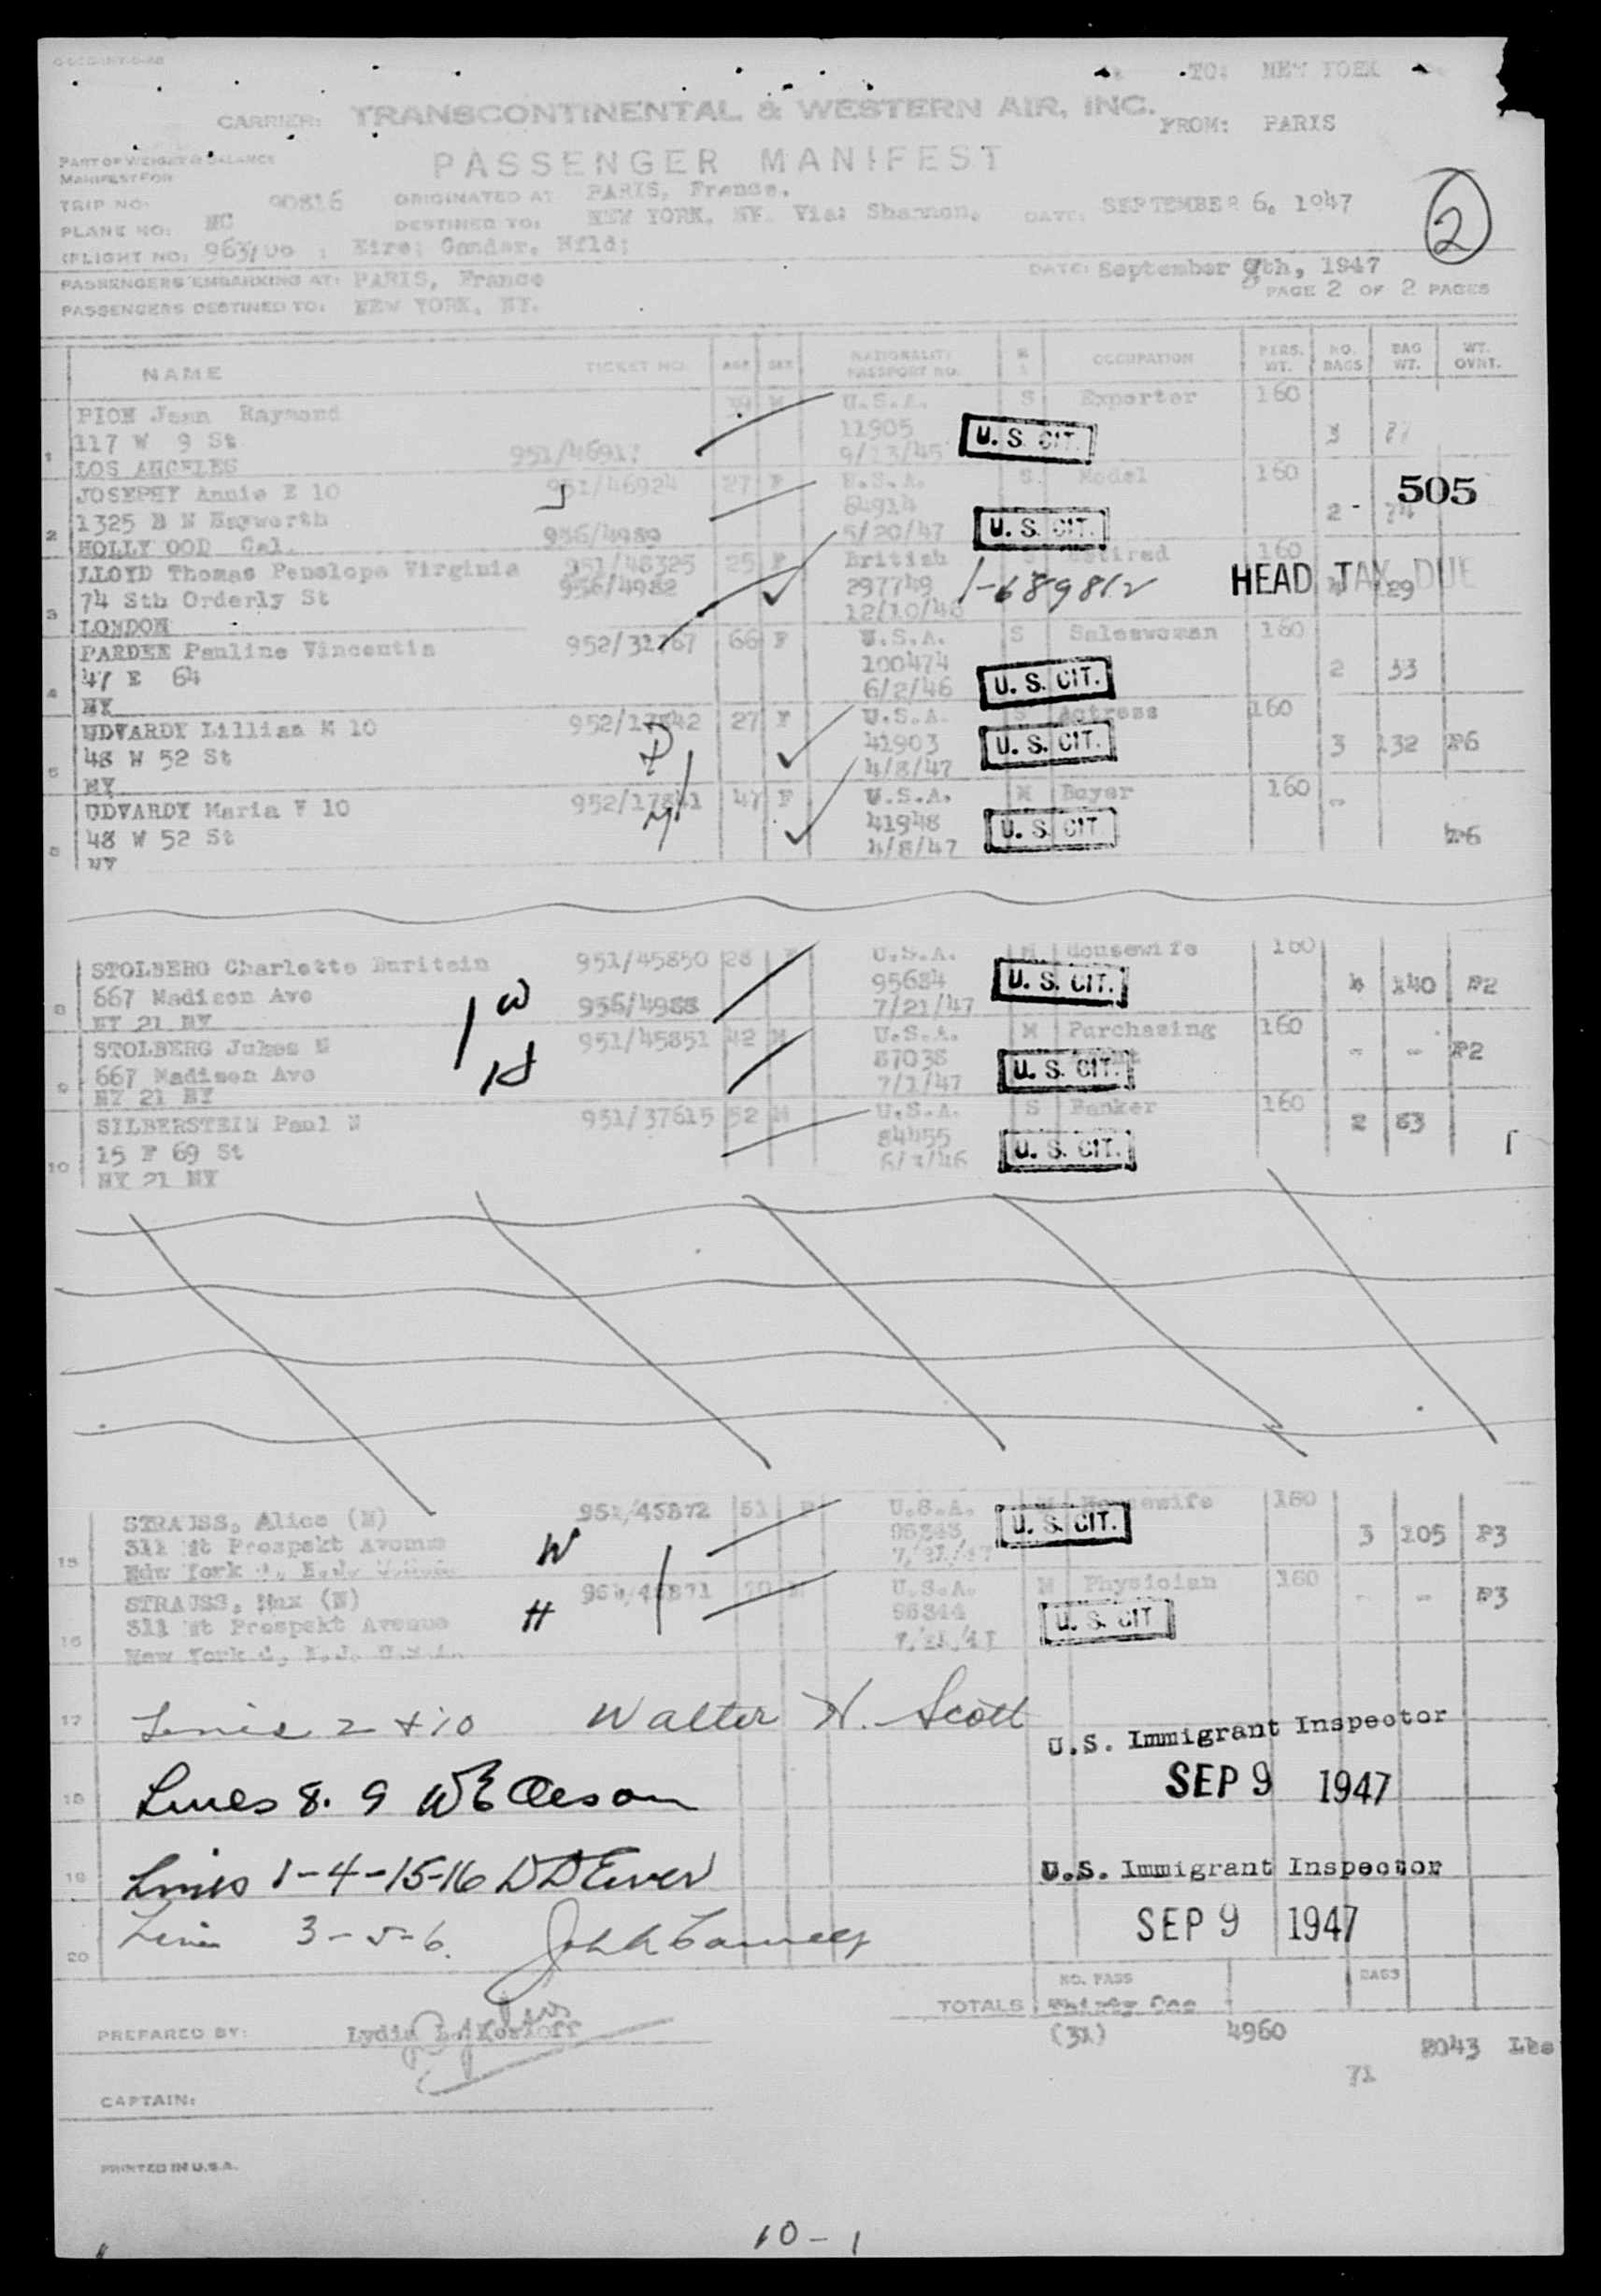 TO: NEW YORK
CARRIER: TRANSCONTINENTAL & WESTERN AIR, INC. FROM: PARIS
PART OF WEIGHT & BALANCE
MANIFEST FOR
PASSENGER MANIFEST
TRIP NO: 90816 ORIGINATED AT PARIS, France. DATE: SEPTEMBER 6, 1947
PLANE NO: NC DESTINED TO: NEW YORK, NY. Via: Shannon,
(FLIGHT NO: 963/ Eire; Gander, Nfld;
2
PASSENGERS EMBARKING AT: PARIS, France DATE: September 9th, 1947
PASSENGERS DESTINED TO: NEW YORK, NY. PAGE 2 OF 2 PAGES
NAME TICKET NO. AGE SEX NATIONALITY PASSPORT NO. OCCUPATION PERS. WT. NO. BAGS BAG WT. WT. OVNT.
PION Jean Raymond 39 M U.S.A. S Exporter 160
117 W 9 St 11905 U. S. CIT. 3 77
1 LOS ANGELES 951/46917 9/13/45
JOSEPHY Annie E 10 951/46924 27 F U.S.A. S. Model 160
1325 B N Hayworth 64914 2 - 74 505
2 HOLLY OOD Cal. 956/4980 5/20/47 U. S. CIT.
LLOYD Thomas Penelope Virginia 951/48325 25 F British S Retired 160
74 Sth Orderly St 956/4982 297749 1-689812 HEAD TAX DUE 4 29
3 LONDON 12/10/46
PARDEE Pauline Vincentia 952/31767 66 F U.S.A. S Saleswoman 160
47 E 64 100474 2 33
4 NY 6/2/46 U. S. CIT.
UDVARDY Lillian M 10 952/17842 27 F U.S.A. S Actress 160
48 W 52 St D 41903 U. S. CIT. 3 132 P6
5 NY 4/8/47
UDVARDY Maria F 10 952/17841 47 F U.S.A. M Buyer 160 -
48 W 52 St M 41948 U. S. CIT. P6
6 NY 4/8/47
STOLBERG Charlotte Buritein 951/45850 28 F U.S.A. M Housewife 160
667 Madison Ave W 956/4988 95684 U. S. CIT. 4 140 P2
8 NY 21 NY 7/21/47
STOLBERG Jukes N 951/45851 42 M U.S.A. M Purchasing 160
667 Madison Ave H 87038 - - P2
9 NY 21 NY 7/1/47 U. S. CIT.
SILBERSTEIN Paul N 951/37615 52 M U.S.A. S Banker 160
15 E 69 St 84455 2 83
10 NY 21 NY 6/3/46 U. S. CIT.
STRAUSS, Alice (N) 951/45872 51 F U.S.A. M Housewife 160
311 Mt Prospekt Avenue W U. S. CIT. 3 105 P3
15
STRAUSS, Max (N) 951/45871 M U.S.A. M Physician 160
311 Mt Prospekt Avenue H 96344 U. S. CIT - - P3
16 New York
17 Lines 2 + 10 Walter H. Scott
U.S. Immigrant Inspector
18 Lines 8. 9 W E Oleson SEP 9 1947
19 Lines 1-4-15-16 U.S. Immigrant Inspector
20 Line 3-5-6. SEP 9 1947
NO. PASS BAGS
TOTALS Thirty One
PREPARED BY: Lydia (31) 4960 2043 Lbs
71
CAPTAIN:
PRINTED IN U.S.A.
10-1